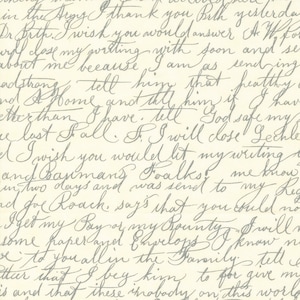 in the Army I thank you Both yesterday
I wish you would answer
and close my writing with soon and se
about me because I am as send ing
and strong tell him that healthy a
and A Home and tell him if I hav
than I have. tell God safe my
last Fall. I will close
I wish you would let my writing
and Baumans Foalks! me know
in two days and was send to my
and got Roach. says that you could no
I get my Pay or my Bounty I will
some paper and Envelops I know n
to you all in the Family tell
that I beg him to for give m
is and that there is nobody in this world